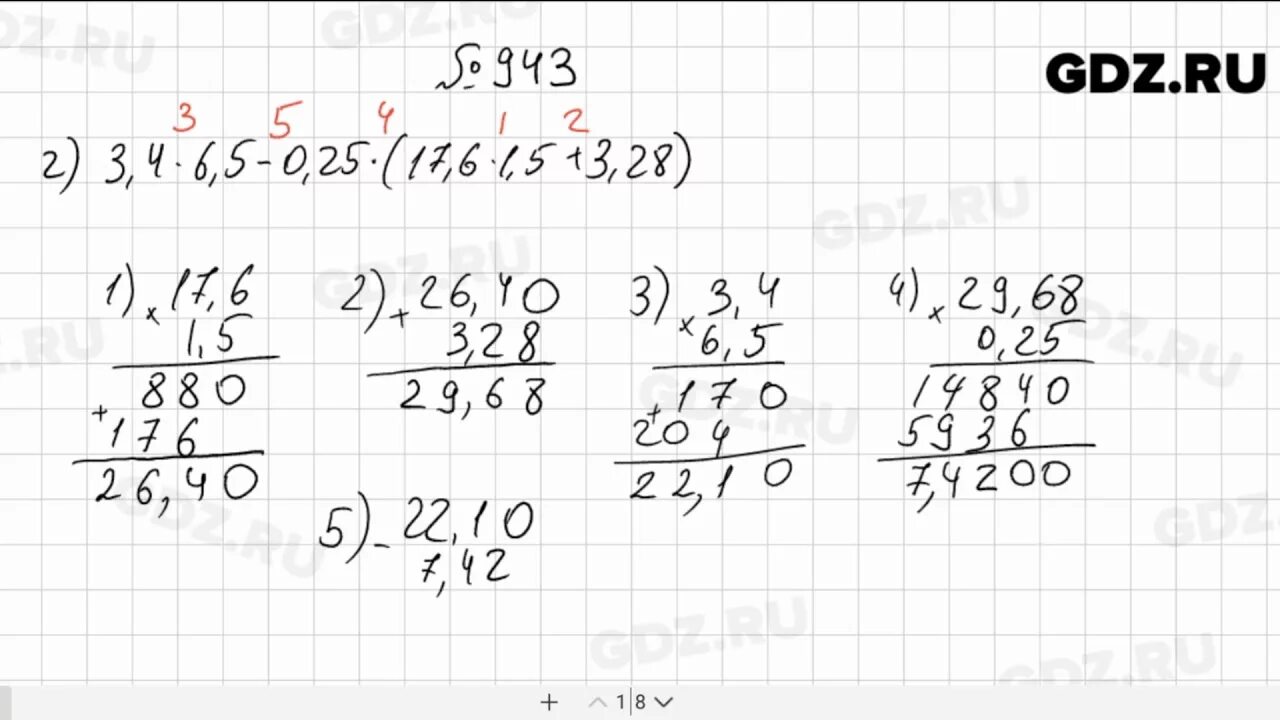 № 943
GDZ.RU
3 5 4 1 2
г) 3,4·6,5-0,25·(17,6·1,5+3,28)
1) × 17,6
1,5
880
+ 176
26,40
2) + 26,40
3,28
29,68
3) × 3,4
6,5
170
+ 204
22,10
4) × 29,68
0,25
14840
5936
7,4200
5) - 22,10
7,42
+ 1|8